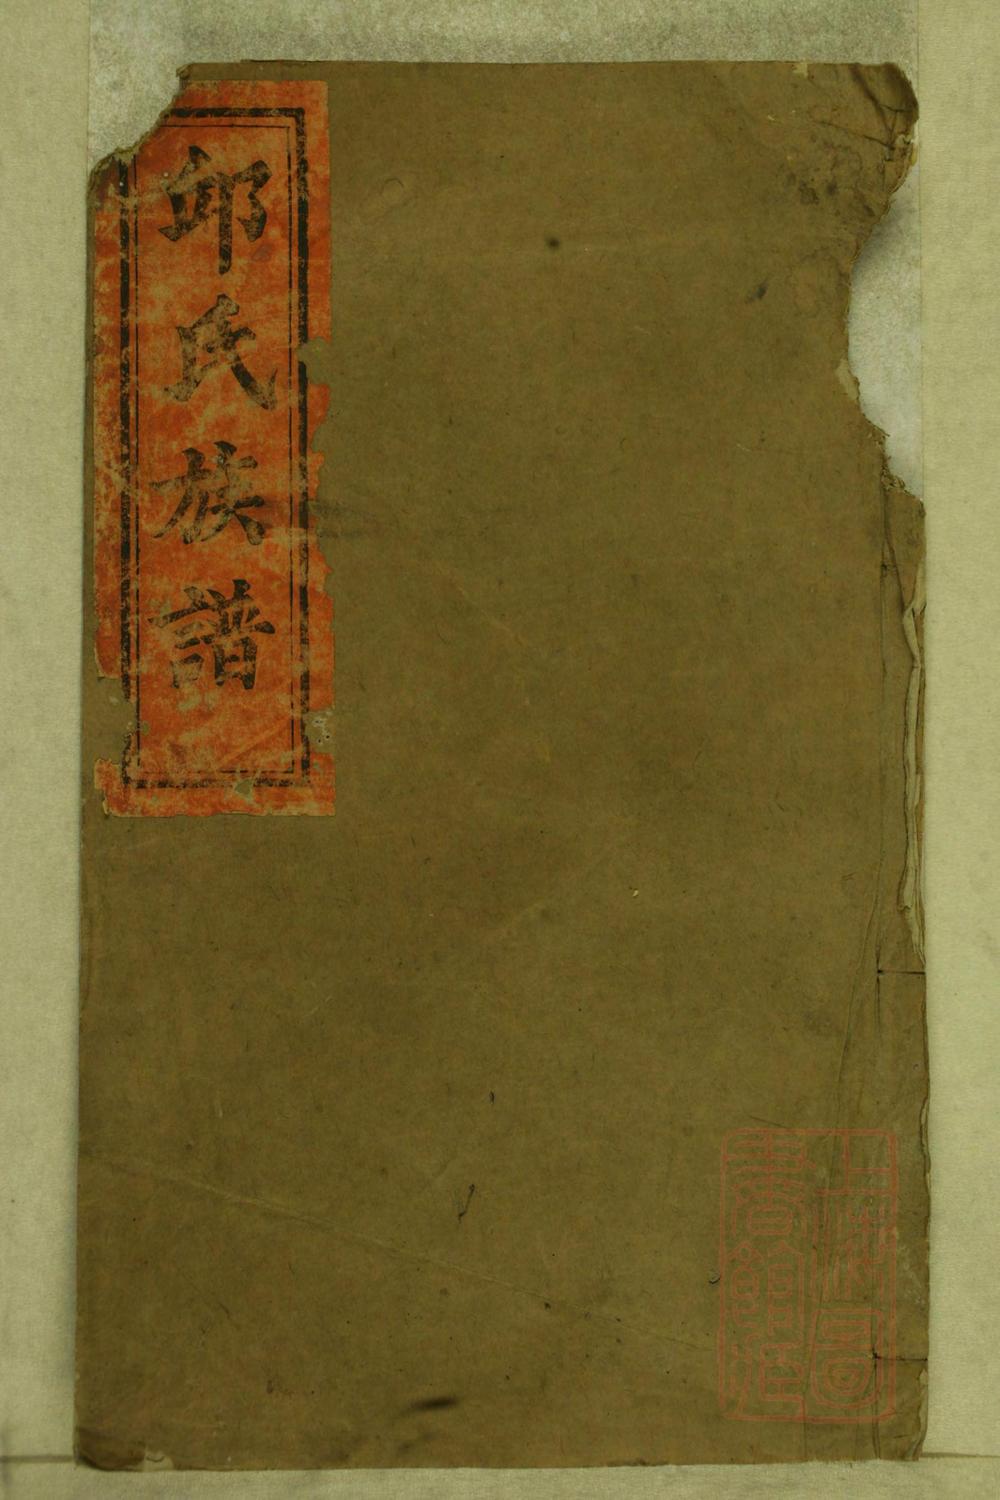 邱氏族譜
上海圖
書館藏